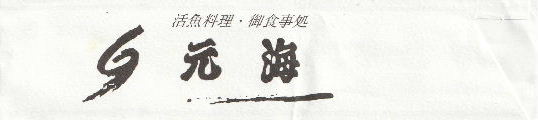 活魚料理・御食事処
元海